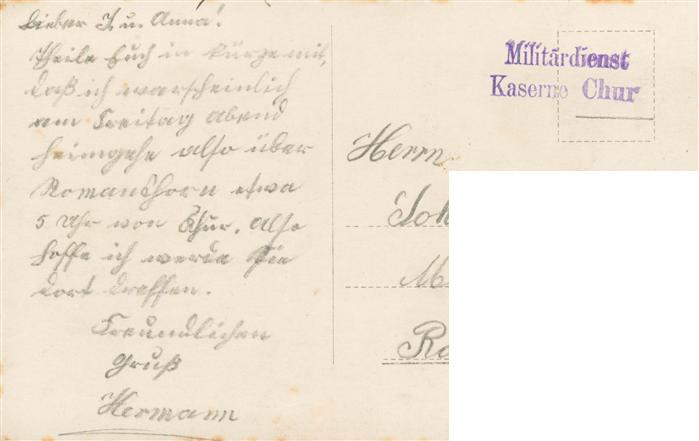 Lieber J. u. Anna!
Theile Euch in Kürze mit,
daß ich warscheinlich
am Freitag abend
heimgehe also über
Romanshorn etwa
5 Uhr von Chur. Also
hoffe ich werde Sie
dort treffen.
Freundlichen
Gruß
Hermann
Militärdienst
Kaserne Chur
Herrn